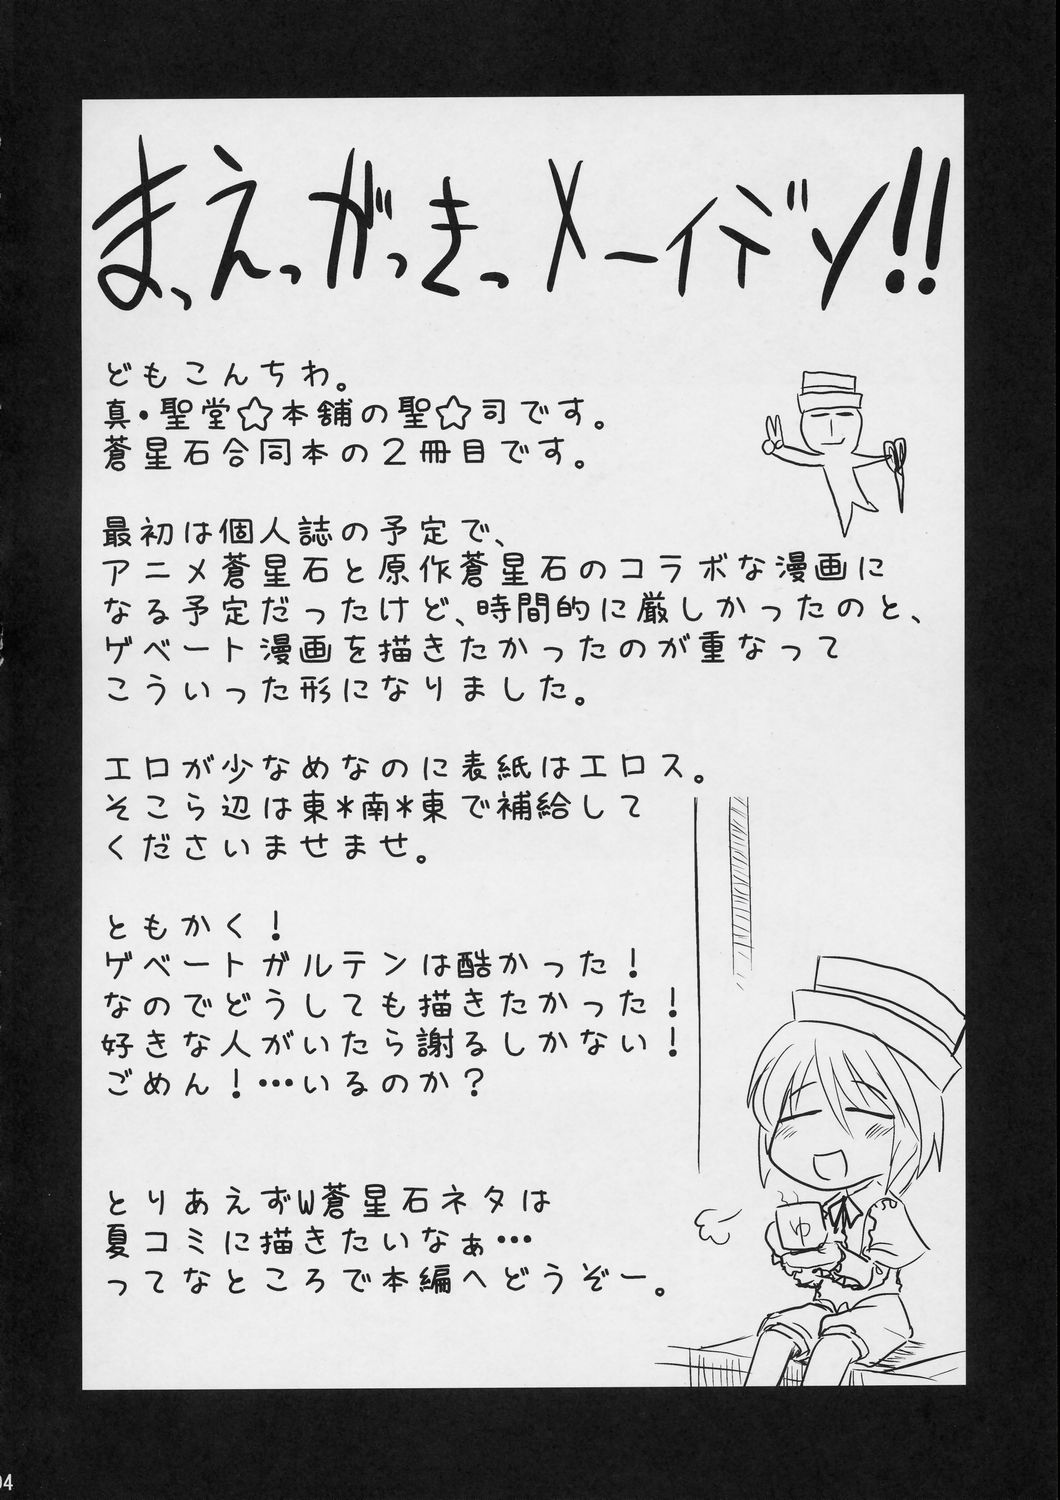 まっえっがっきっメーイデン!!
どもこんちわ。
真・聖堂☆本舗の聖☆司です。
蒼星石合同本の2冊目です。
最初は個人誌の予定で、
アニメ蒼星石と原作蒼星石のコラボな漫画に
なる予定だったけど、時間的に厳しかったのと、
ゲベート漫画を描きたかったのが重なって
こういった形になりました。
エロが少なめなのに表紙はエロス。
そこら辺は東*南*東で補給して
くださいませませ。
ともかく!
ゲベートガルテンは酷かった!
なのでどうしても描きたかった!
好きな人がいたら謝るしかない!
ごめん!…いるのか?
とりあえずW蒼星石ネタは
夏コミに描きたいなぁ…
ってなところで本編へどうぞー。
ゆ
04